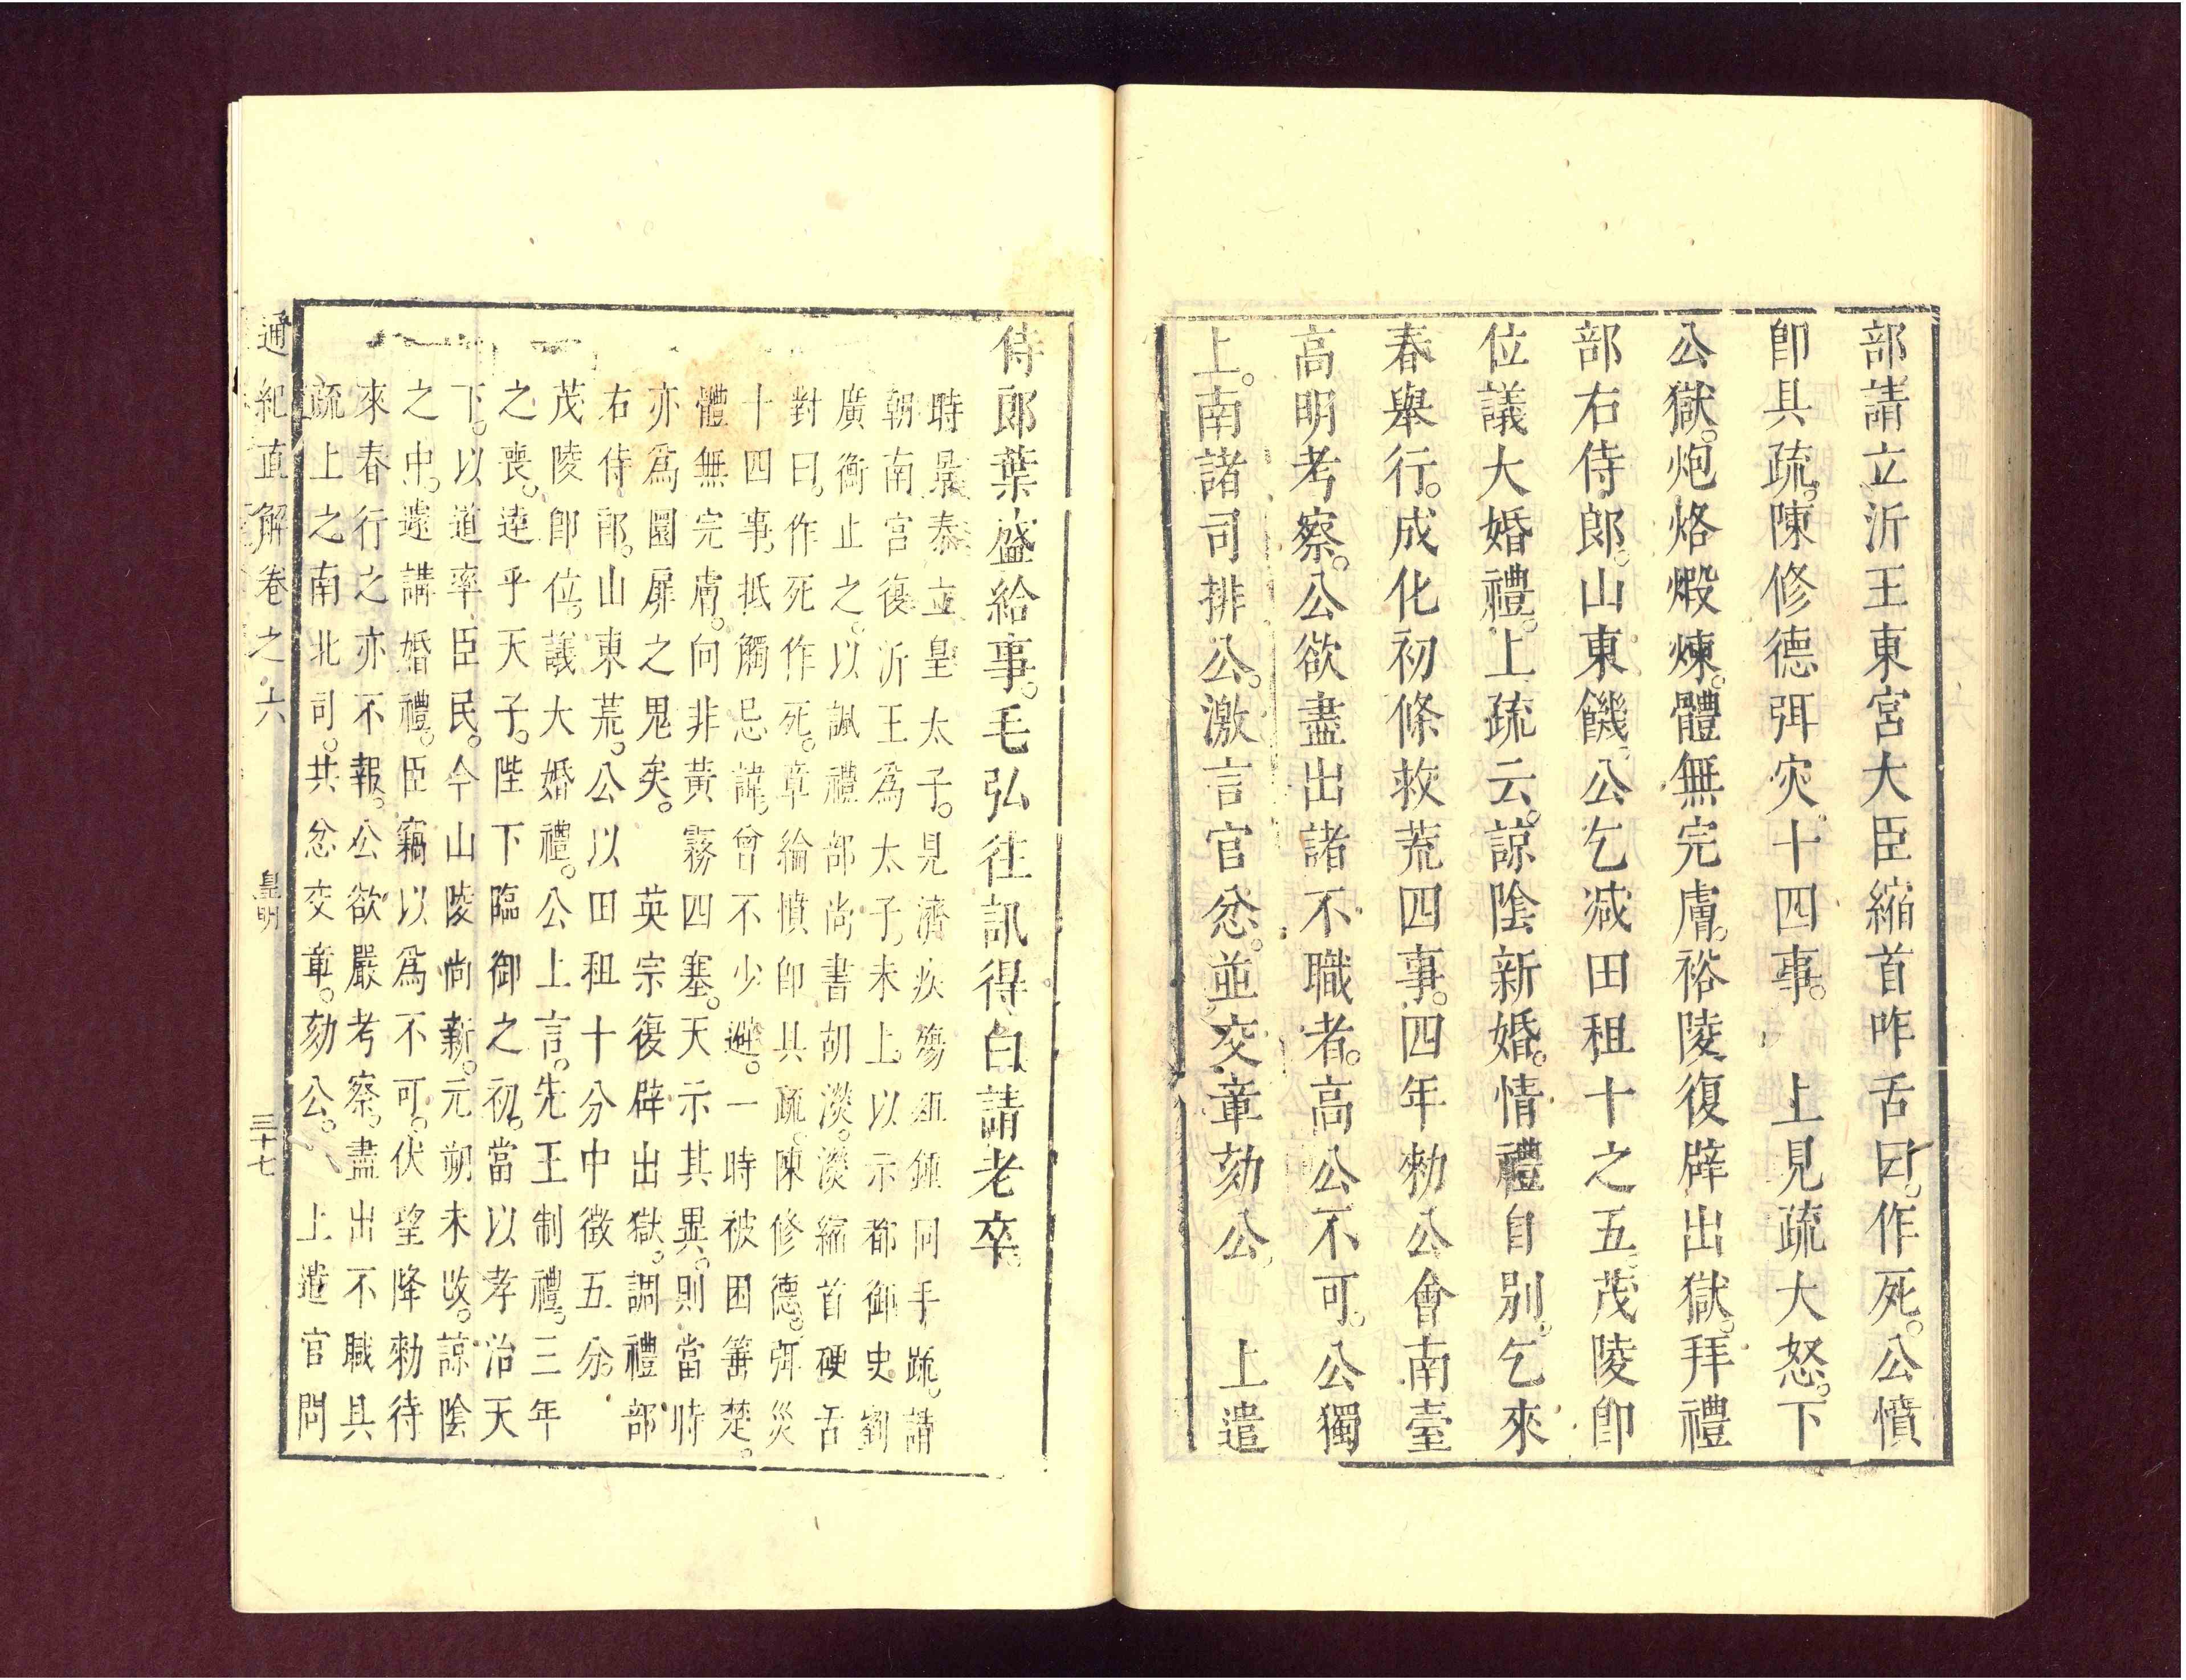 部請立沂王東宮大臣縮首咋舌曰作死公憤
卽具疏陳修德弭灾十四事 上見疏大怒下
公獄炮烙煅煉體無完膚裕陵復辟出獄拜禮
部右侍郎山東饑公乞減田租十之五茂陵卽
位議大婚禮上疏云諒陰新婚情禮自別乞來
春舉行成化初條救荒四事四年勑公會南臺
高明考察公欲盡出諸不職者高公不可公獨
上南諸司排公激言官忿並交章劾公 上遣
侍郎葉盛給事毛弘往訊得白請老卒
時景泰立皇太子見濟疾殤廷鍾同手疏請
朝南宮復沂王爲太子未上以示都御史劉
廣衡止之以諷禮部尚書胡濙濙縮首硬舌
對曰作死作死章綸憤卽具疏陳修德弭災
十四事抵觸忌諱曾不少避一時被困箠楚
體無完膚向非黃霧四塞天示其異則當時
亦爲圜扉之鬼矣 英宗復辟出獄調禮部
右侍郎山東荒公以田租十分中徵五分
茂陵卽位議大婚禮公上言先王制禮三年
之喪達乎天子陛下臨御之初當以孝治天
下以道率臣民今山陵尚新元朔未改諒陰
之中遽講婚禮臣竊以爲不可伏望降勑待
來春行之亦不報公欲嚴考察盡出不職具
疏上之南北司共忿交章劾公 上遣官問
通紀直解卷之六 皇明 三十七